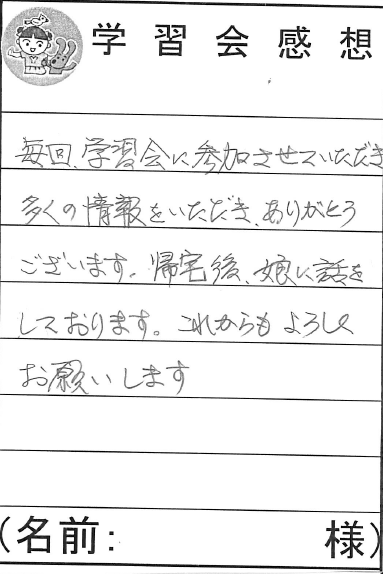 学習会感想
毎回、学習会に参加させていただき
多くの情報をいただき、ありがとう
ございます。帰宅後、娘に話を
しております。これからもよろしく
お願いします
(名前: 様)